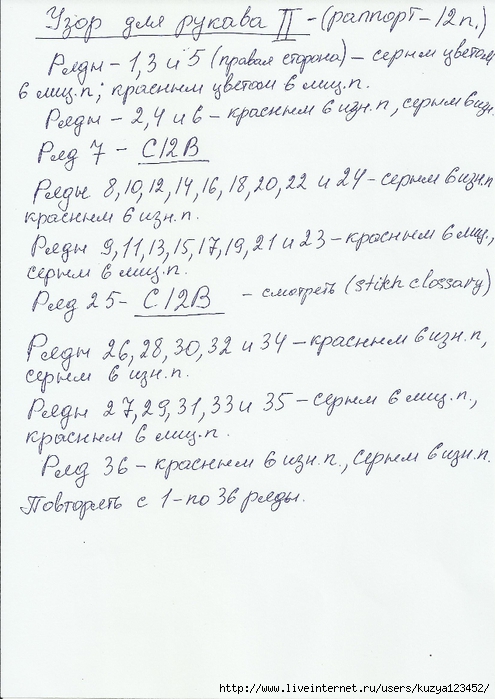 Узор для рукава II - (раппорт - 12 п.)
Ряды - 1, 3 и 5 (правая сторона) - серым цветом
6 лиц. п; красным цветом 6 лиц. п.
Ряды - 2, 4 и 6 - красным 6 изн. п, серым 6 изн.
Ряд 7 - C12B
Ряды 8, 10, 12, 14, 16, 18, 20, 22 и 24 - серым 6 изн п
красным 6 изн. п.
Ряды 9, 11, 13, 15, 17, 19, 21 и 23 - красным 6 лиц.,
серым 6 лиц. п.
Ряд 25 - C12B - смотреть (stikh clossary)
Ряды 26, 28, 30, 32 и 34 - красным 6 изн. п,
серым 6 изн. п.
Ряды 27, 29, 31, 33 и 35 - серым 6 лиц. п.,
красным 6 лиц. п.
Ряд 36 - красным 6 изн. п., серым 6 изн. п.
Повторять с 1 - по 36 ряды.
http://www.liveinternet.ru/users/kuzya123452/